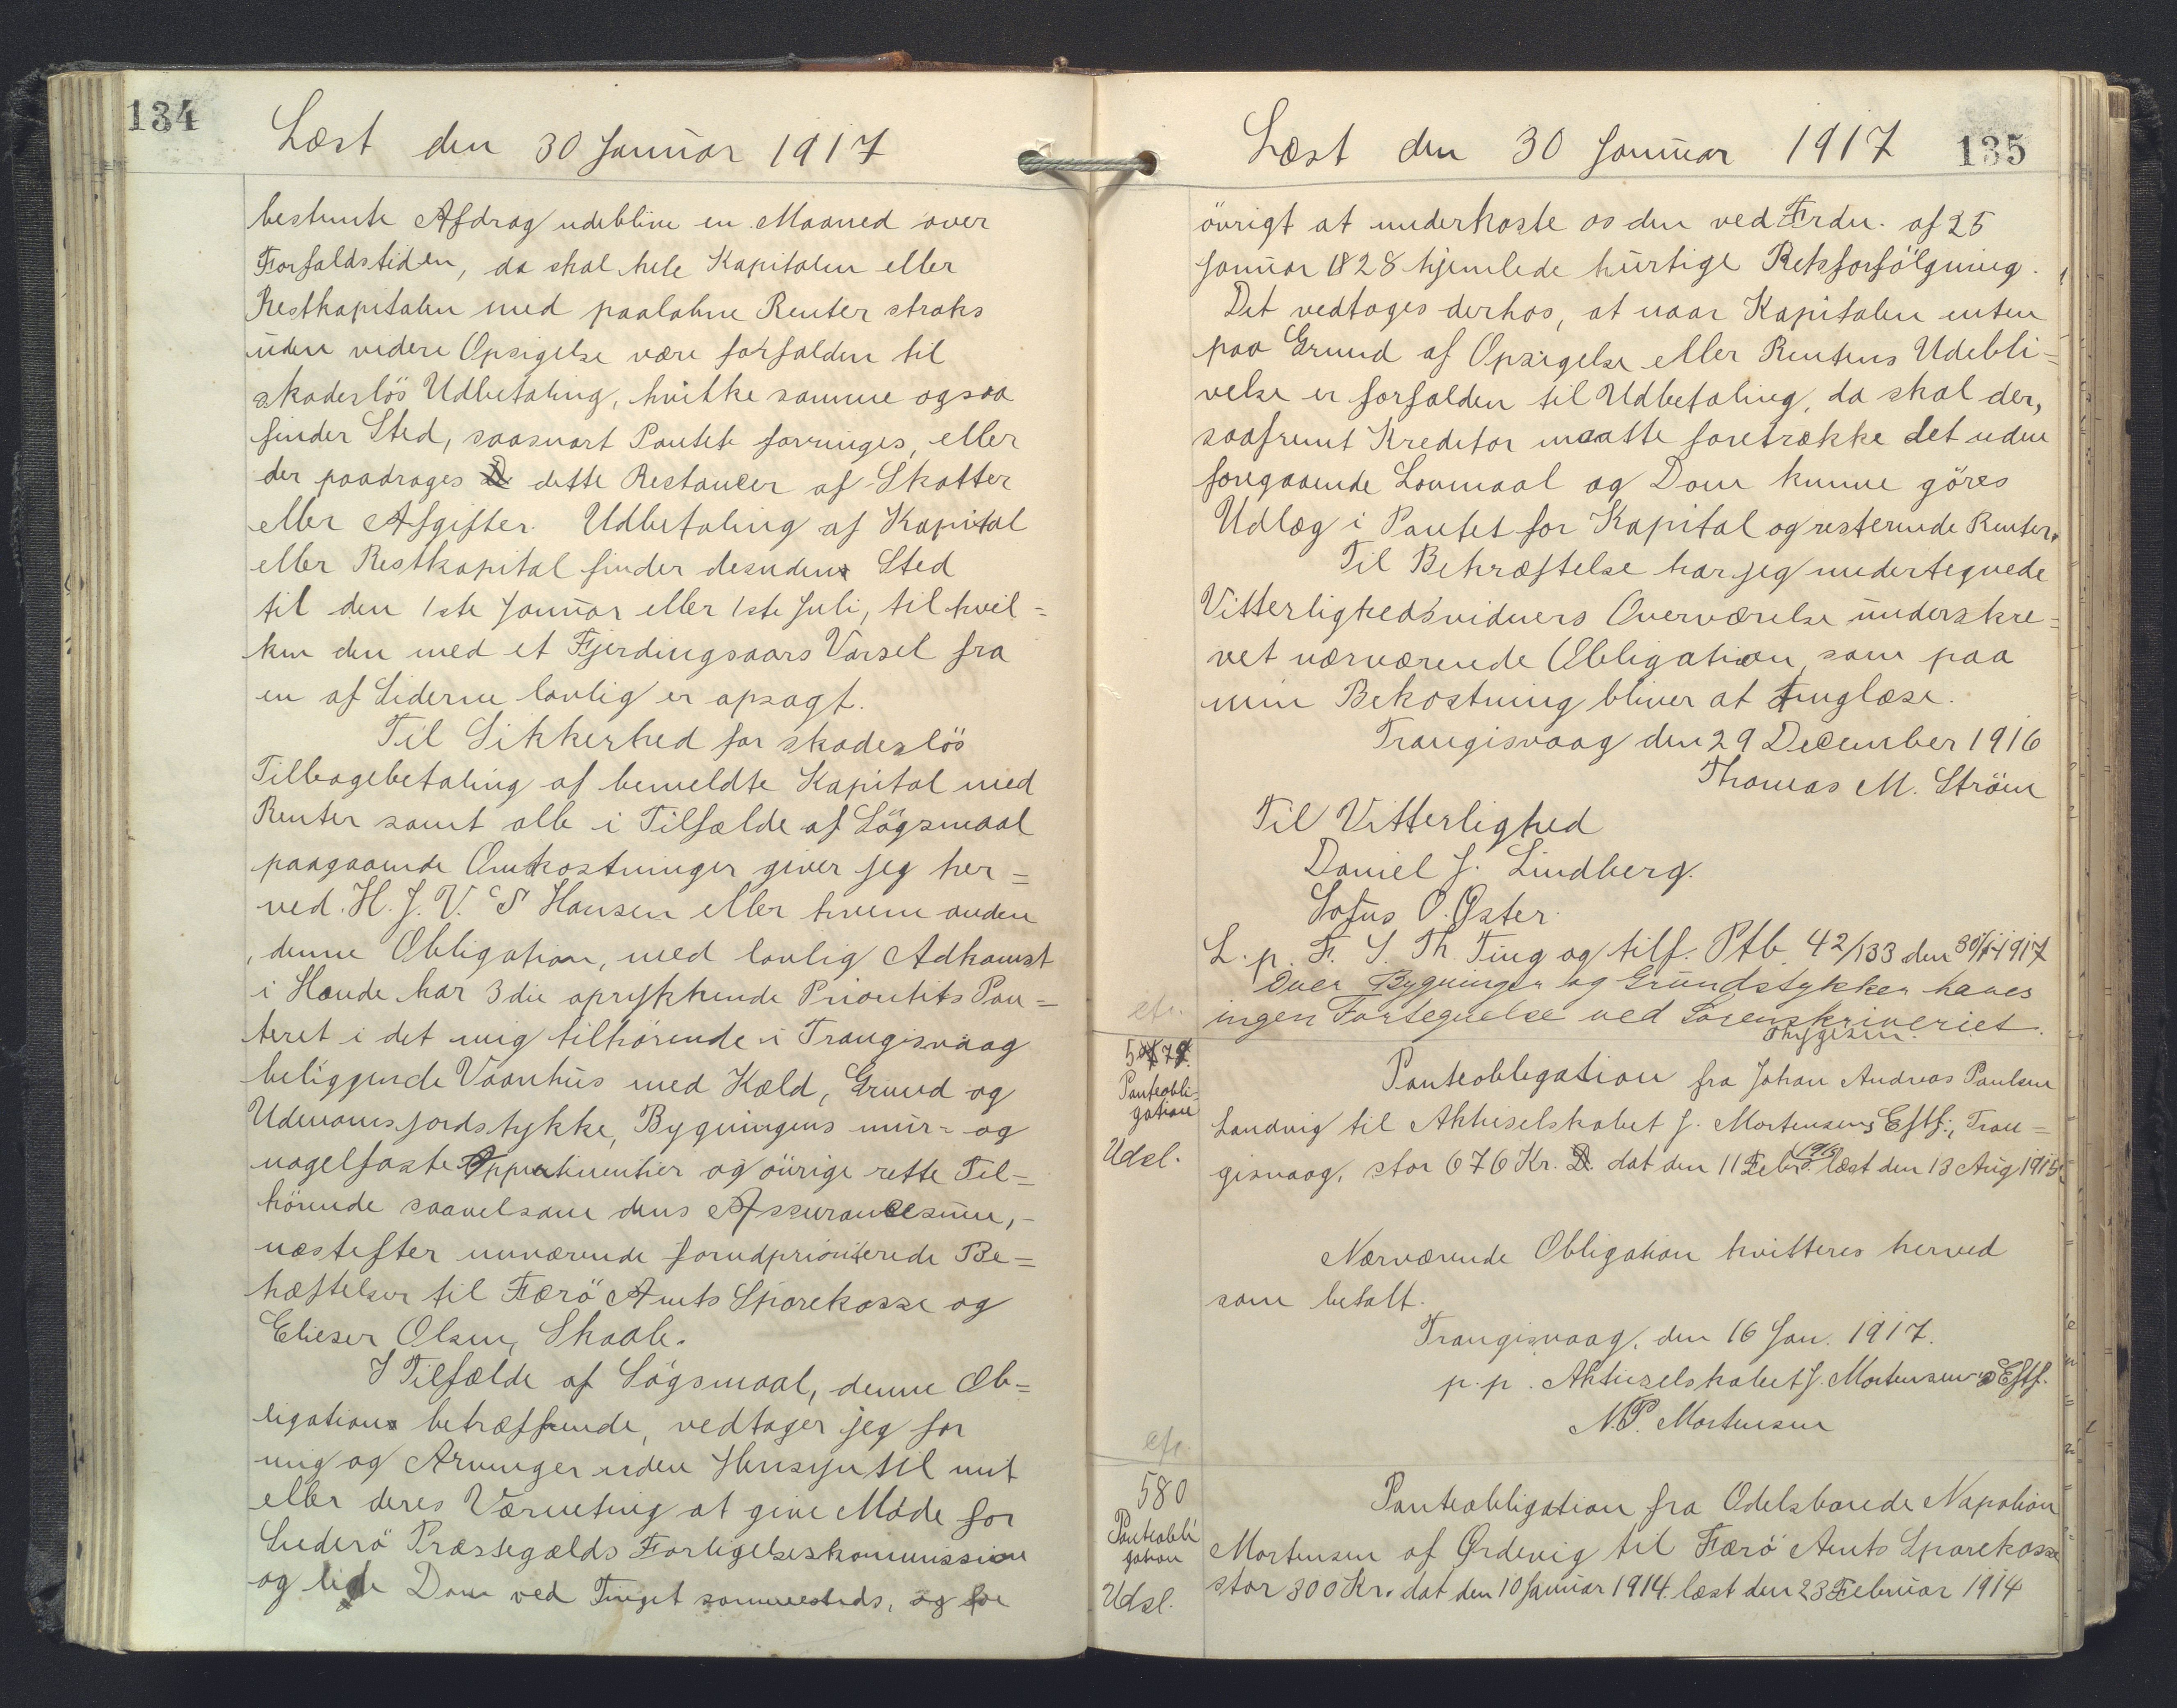 134
Læst den 30 Januar 1917
bestemte Afdrag udeblive en Maaned over
Forfaldstiden, da skal hele Kapitalen eller
Restkapitalen med paaløbne Renter straks
uden videre Opsigelse være forfalden til
skadeslös Udbetaling, hvilke samme ogsaa
finder Sted, saasnart Pantet forringes, eller
der paadrages dette Restancer af Skatter
eller Afgifter. Udbetaling af Kapital
eller Restkapital finder desuden Sted
til den 1ste Januar eller 1ste Juli, til hvil=
ken den med et Fjerdingsaars Varsel fra
en af Siderne lovlig er opsagt.
Til Sikkerhed for skadeslös
Tilbagebetaling af bemeldte Kapital med
Renter samt alle i Tilfælde af Lögsmaal
paagaaende Omkostninger giver jeg her=
ved H. J. V. S Hansen eller hvem anden
denne Obligation, med lovlig Adkomst
i Hænde har 3die oprykkende Prioritets Pan=
teret i det mig tilhörende i Trangisvaag
beliggende Vaanhus med Kæld, Grund og
Udenomsjordstykke, Bygningens mur= og
nagelfaste Appertinentier og övrige rette Til=
hörende saavelsom dens Assurancesum,
næstefter nuværende forudprioriterede Be=
hæftelser til Færö Amts Sparekasse og
Elieser Olsen, Skaale.
I Tilfælde af Lögsmaal, denne Ob=
ligation betræffende, vedtager jeg for
mig og Arvinger uden Hensyn til mit
eller deres Værneting at give Möde for
Suderö Præstegælds Forligelseskommission
og lide Dom ved Tinget sammesteds, og for
Læst den 30 Januar 1917
135
övrigt at underkaste os den ved Frdn. af 25
Januar 1828 hjemlede hurtige Retsforfölgning.
Det vedtages derhos, at naar Kapitalen enten
paa Grund af Opsigelse eller Rentens Udebli=
velse er forfalden til Udbetaling, da skal der,
saafremt Kreditor maatte foretrække det uden
foregaaende Lovmaal og Dom kunne göres
Udlæg i Pantet for Kapital og resterende Renter.
Til Bekræftelse har jeg undertegnede
Vitterlighedsvidners Overværelse underskre=
vet nærværende Obligation, som paa
min Bekostning bliver at tinglæse.
Trangisvaag den 29 December 1916
Thomas M. Ström
Til Vitterlighed
Daniel J. Lindberg.
Sofus O. Øster.
L. p. F. S. Th. Ting og tilf. Ptb. 42/133 den 30/1 1917
Over Bygningen og Grundstykken haves
ingen Fortegnelse ved Sorenskriveriet.
Thygesen.
cfr.
579.
Panteobli-
gation
Udsl.
Panteobligation fra Johan Andreas Paulsen
Landvig til Aktieselskabet J. Mortensens Eftf., Tran=
gisvaag, stor 676 Kr. dat den 11 Febr 1915 læst den 13 Aug 1915.
Nærværende Obligation kvitteres herved
som betalt.
Trangisvaag, den 16 Jan. 1917.
p. p. Aktieselskabet J. Mortensens Eftf.
N. P. Mortensen
cfr.
580
Panteobli
gation
Udsl.
Panteobligation fra Odelsbonde Napolion
Mortensen af Ørdevig til Færö Amts Sparekasse
stor 300 Kr. dat den 10 Januar 1914 læst den 23 Februar 1914